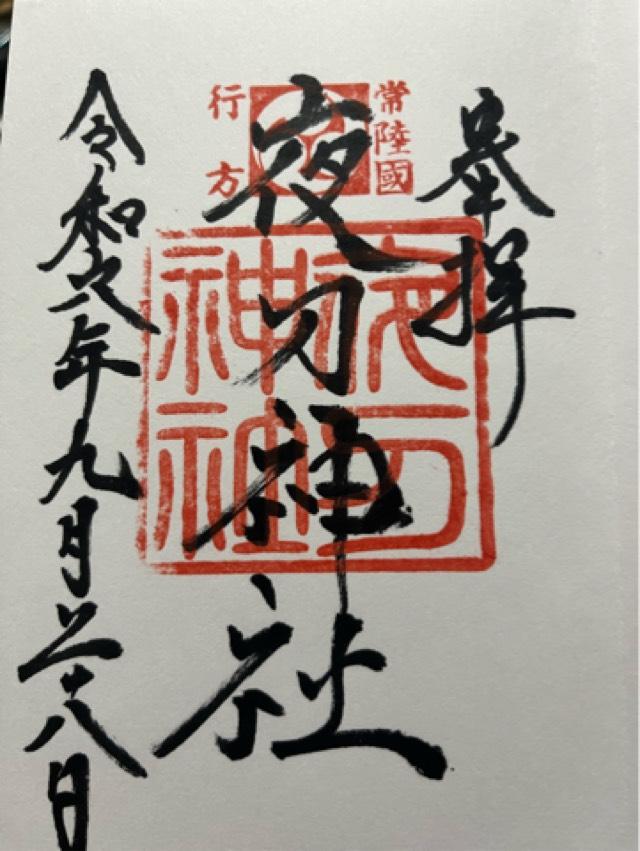 奉拝
常陸國
行方
夜刀神社
夜刀神社
令和六年九月二十八日